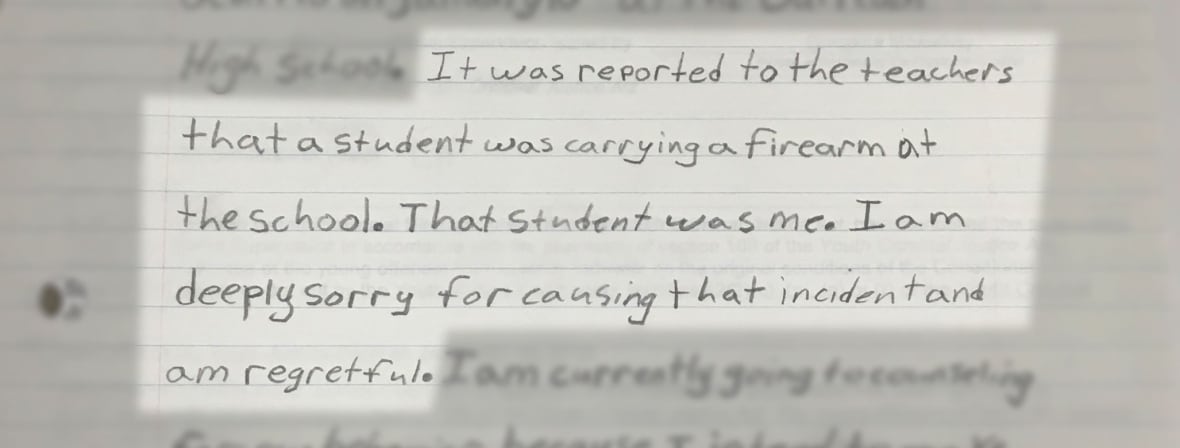 High School. It was reported to the teachers
that a student was carrying a firearm at
the school. That student was me. I am
deeply sorry for causing that incident and
am regretful. I am currently going to counseling